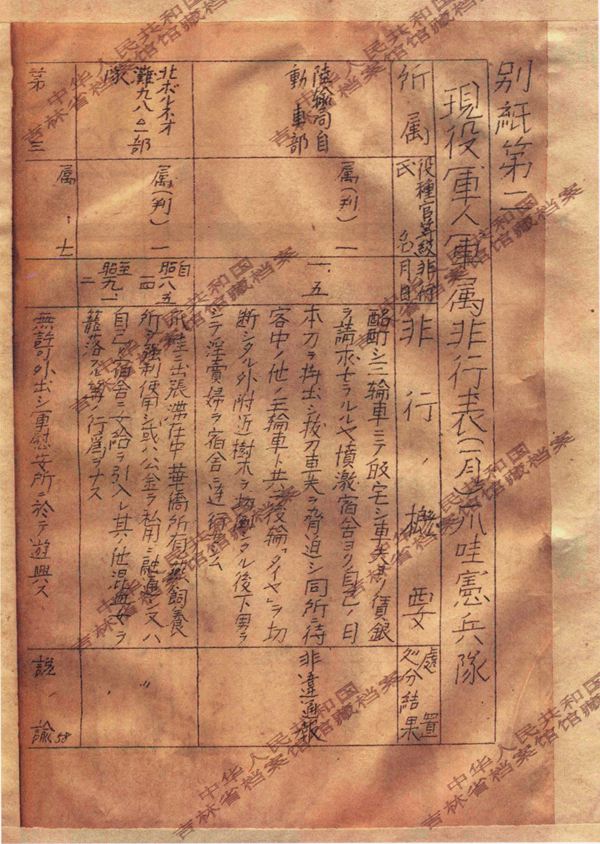 別紙第二
現役軍人軍属非行表(一月)爪哇憲兵隊
所属
役種官等級
氏名
非行月日
非行ノ概要
處置
処分結果
陸輸局自
動車部
属(判)一
一、五
酩酊シ二輪車ニテ皈宅シ車夫ヨリ賃銀
ヲ請求セラルルヤ憤激宿舎ヨリ自己ノ日
本刀ヲ持出シ抜刀車夫ヲ脅迫シ同所ニ待
客中ノ他ノ三輪車ト共ニ後輪「タイヤ」ヲ切
断シタル外附近ノ樹木ヲ切倒シタル後下男ヲ
シテ淫賣婦ヲ宿舎ニ連行セシム
非違通報
北ボルネオ
灘九八〇一部
隊
属(判)一
自昭一八、五
至昭一九、一
出張滞在中華僑所有
所ヲ強制使用シ或ハ公金ヲ私用ニ融通シ又ハ
自己ノ宿舎ニ女給ヲ引入レ其ノ他混血女ヲ
籠落スル等ノ行為ヲナス
〃
第三
属・七
無許可外出シ軍慰安所ニ於テ遊興ス
説諭
58
中华人民共和国
吉林省档案馆馆藏档案